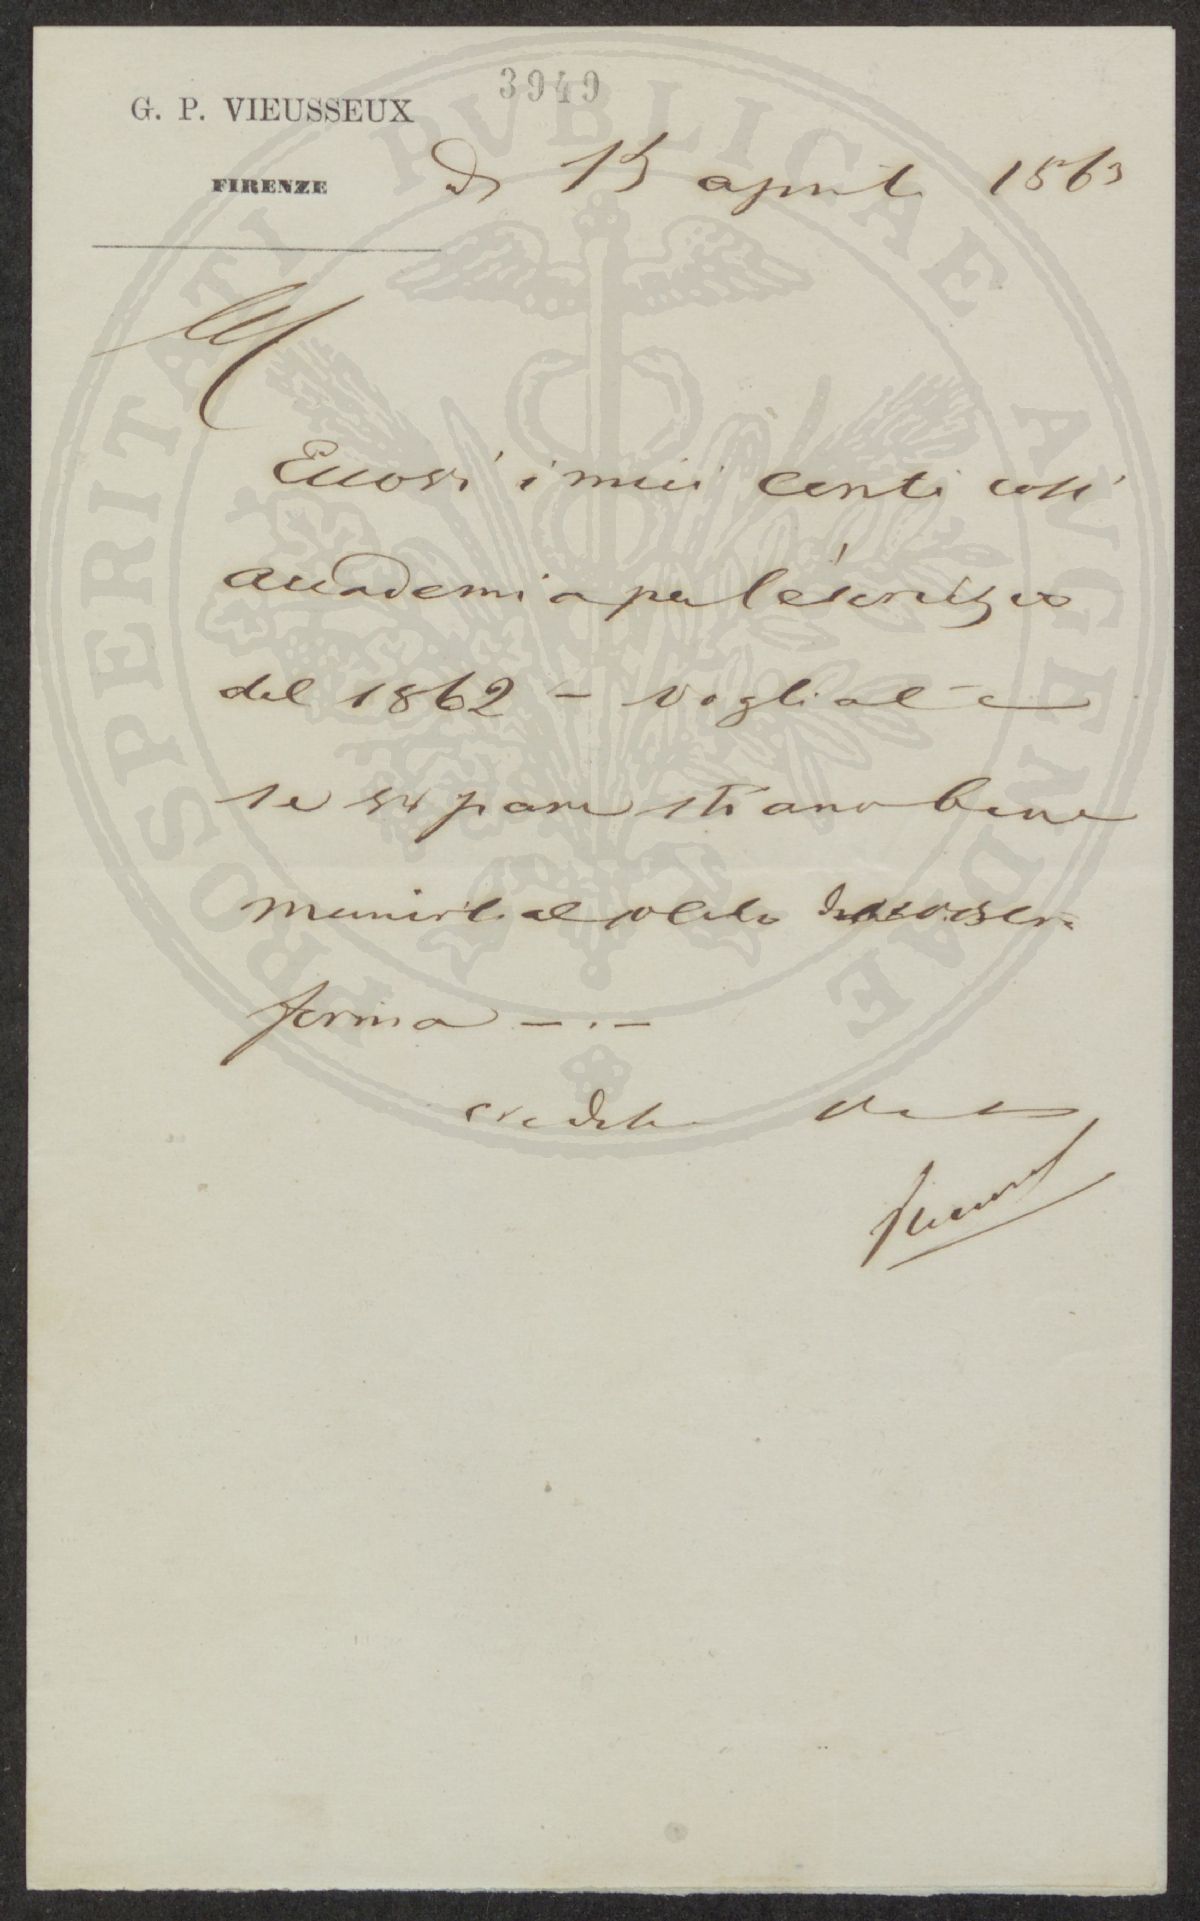 3949
G. P. VIEUSSEUX
FIRENZE
di 15 aprile 1863
Eccovi i miei conti coll'
accademia per l'esercizio
del 1862 – vogliate
se vi pare stiano bene
munirli al solito
firma – . –
credete
PROSPERITATI PVBLICAE AVGENDAE